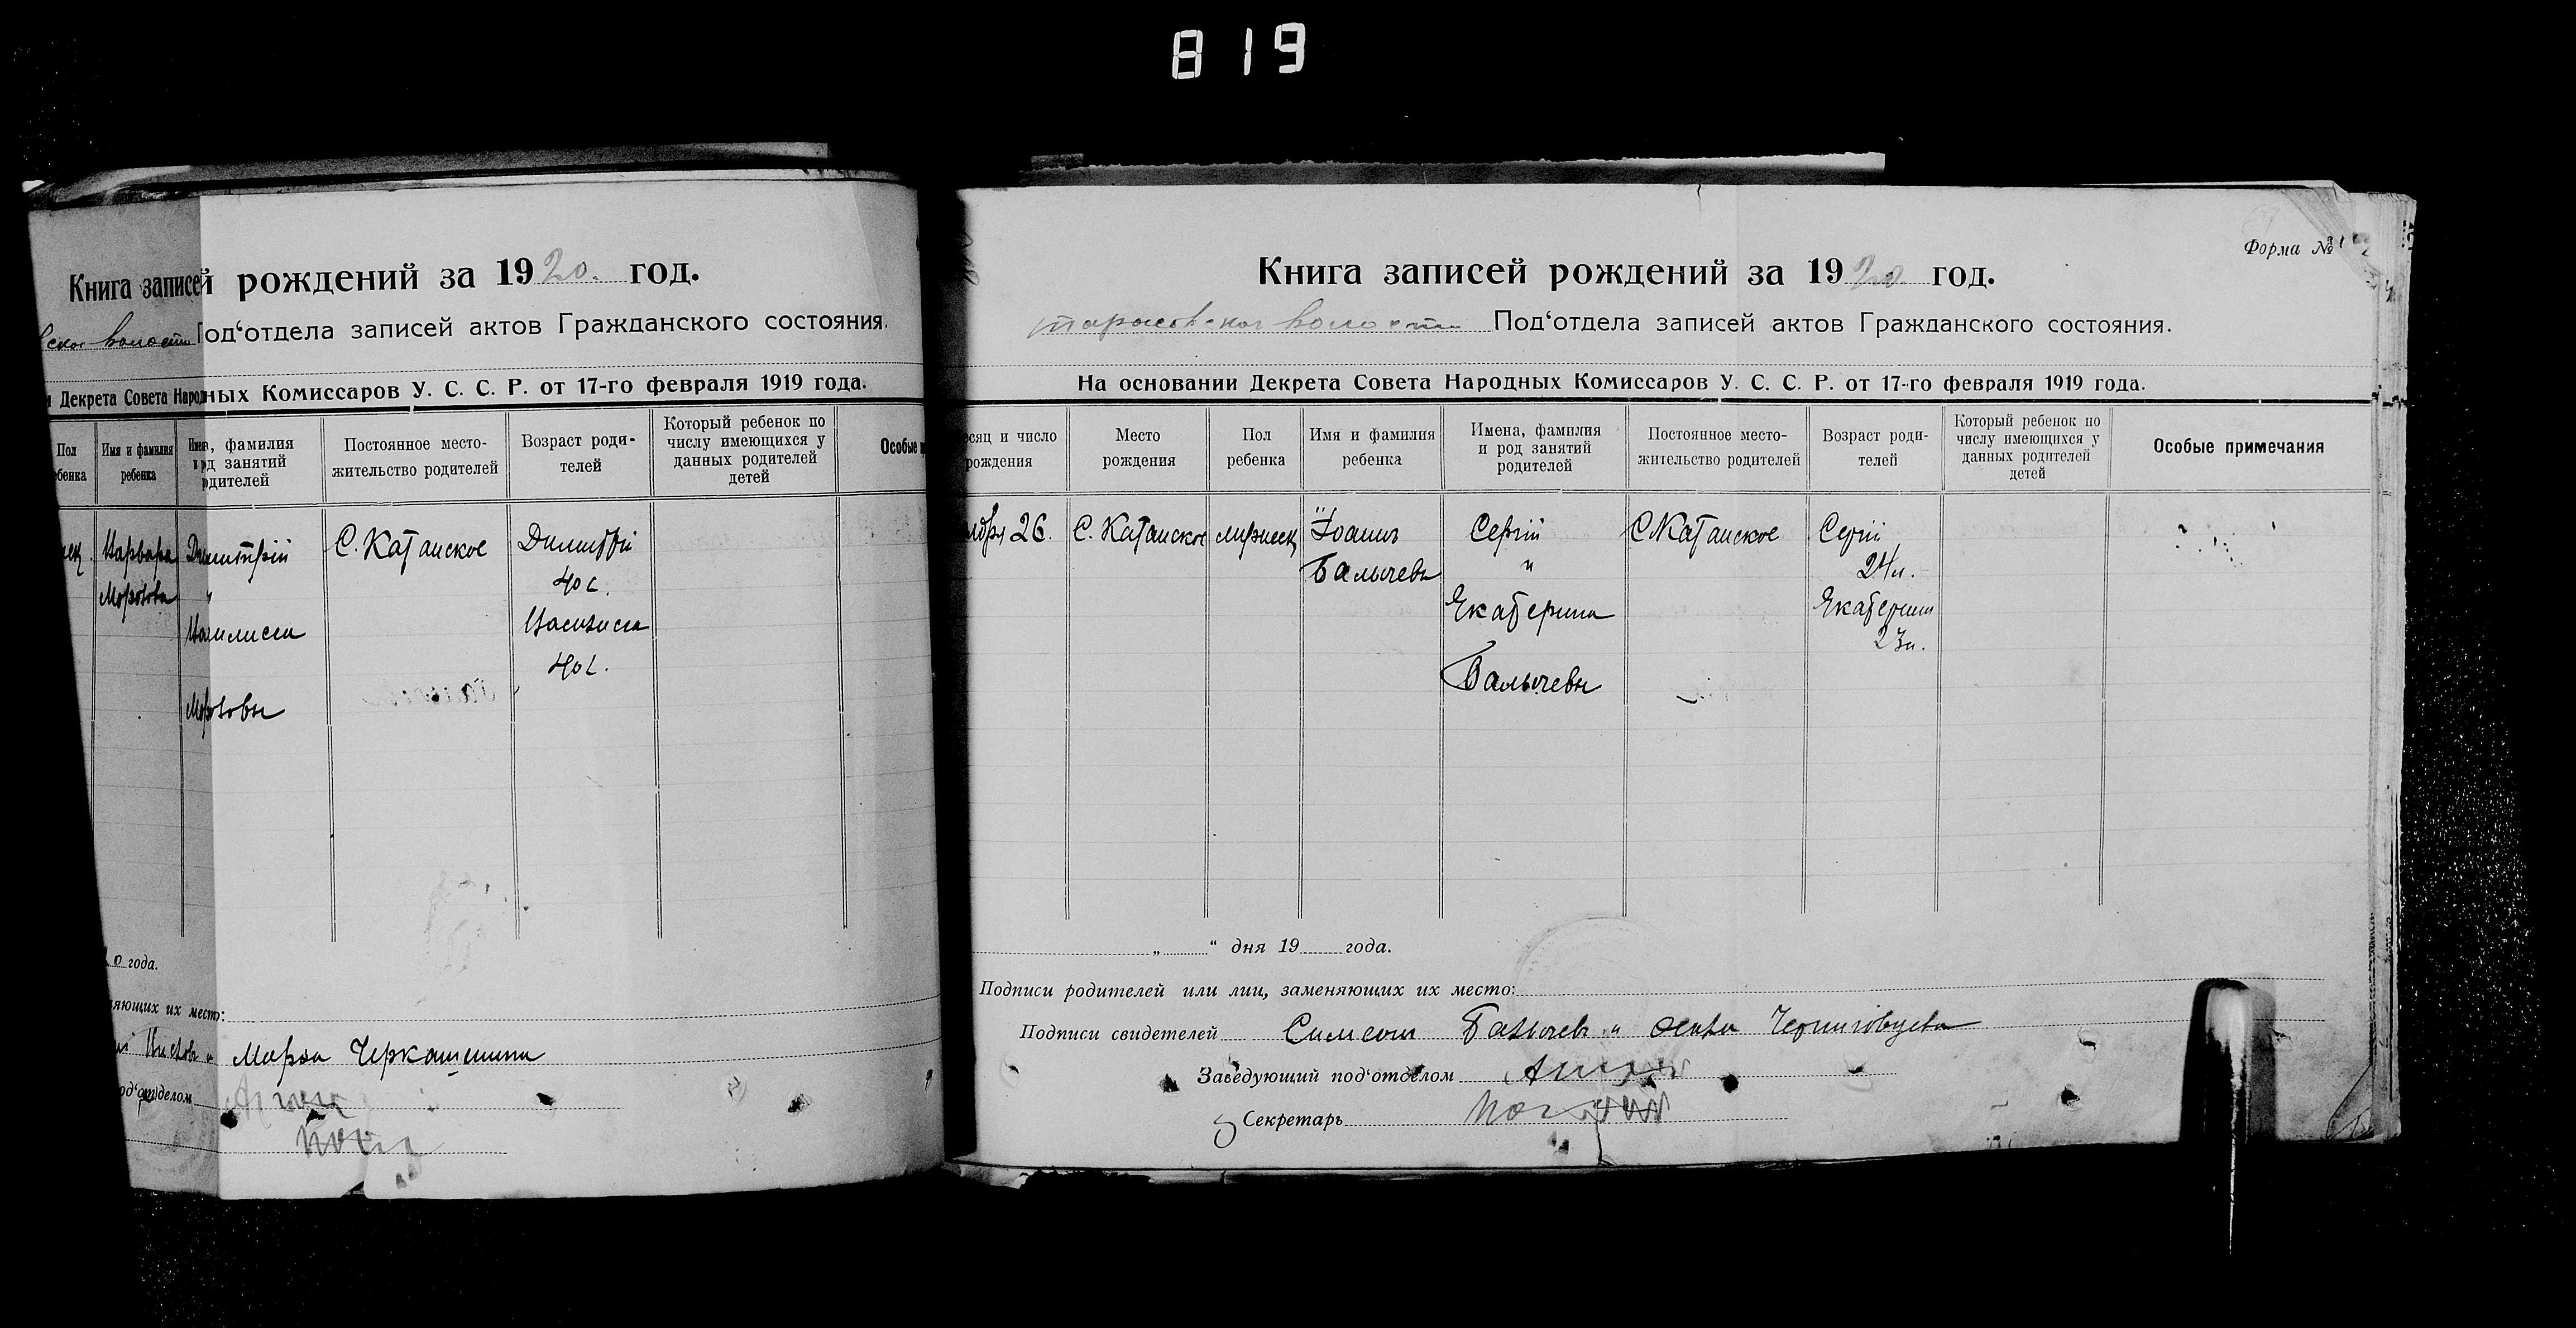 819
Книга записей рождений за 1920. год.
ской волости Под‘отдела записей актов Гражданского состояния.
и Декрета Совета Народных Комиссаров У. С. С. Р. от 17-го февраля 1919 года.
Пол ребенка
Имя и фамилия ребенка
Имена, фамилия и род занятий родителей
Постоянное место-жительство родителей
Возраст роди-телей
Который ребенок по числу имеющихся у данных родителей детей
Особые
Варвара Димитрій С. Катанское Димитрій
Морозова " 40 л.
40 л.
Морозовы
0 года.
няющих их место:
и Марѳа Черкашенина
под‘отделом
Форма №
Книга записей рождений за 1920 год.
волости Под‘отдела записей актов Гражданского состояния.
На основании Декрета Совета Народных Комиссаров У. С. С. Р. от 17-го февраля 1919 года.
есяц и число рождения
Место рождения
Пол ребенка
Имя и фамилия ребенка
Имена, фамилия и род занятий родителей
Постоянное место-жительство родителей
Возраст роди-телей
Который ребенок по числу имеющихся у данных родителей детей
Особые примечания
26. С. Катанское мужеск Іоаннъ Сергій С Катанское Сергій
Балычевъ и 24 л.
Екатерина Екатерина
23 л.
Балычевы
„ “ дня 19 года.
Подписи родителей или лиц, заменяющих их место:
Подписи свидетелей Симеон Балычевъ и Черниговцева
Заведующий под‘отделом
Секретарь